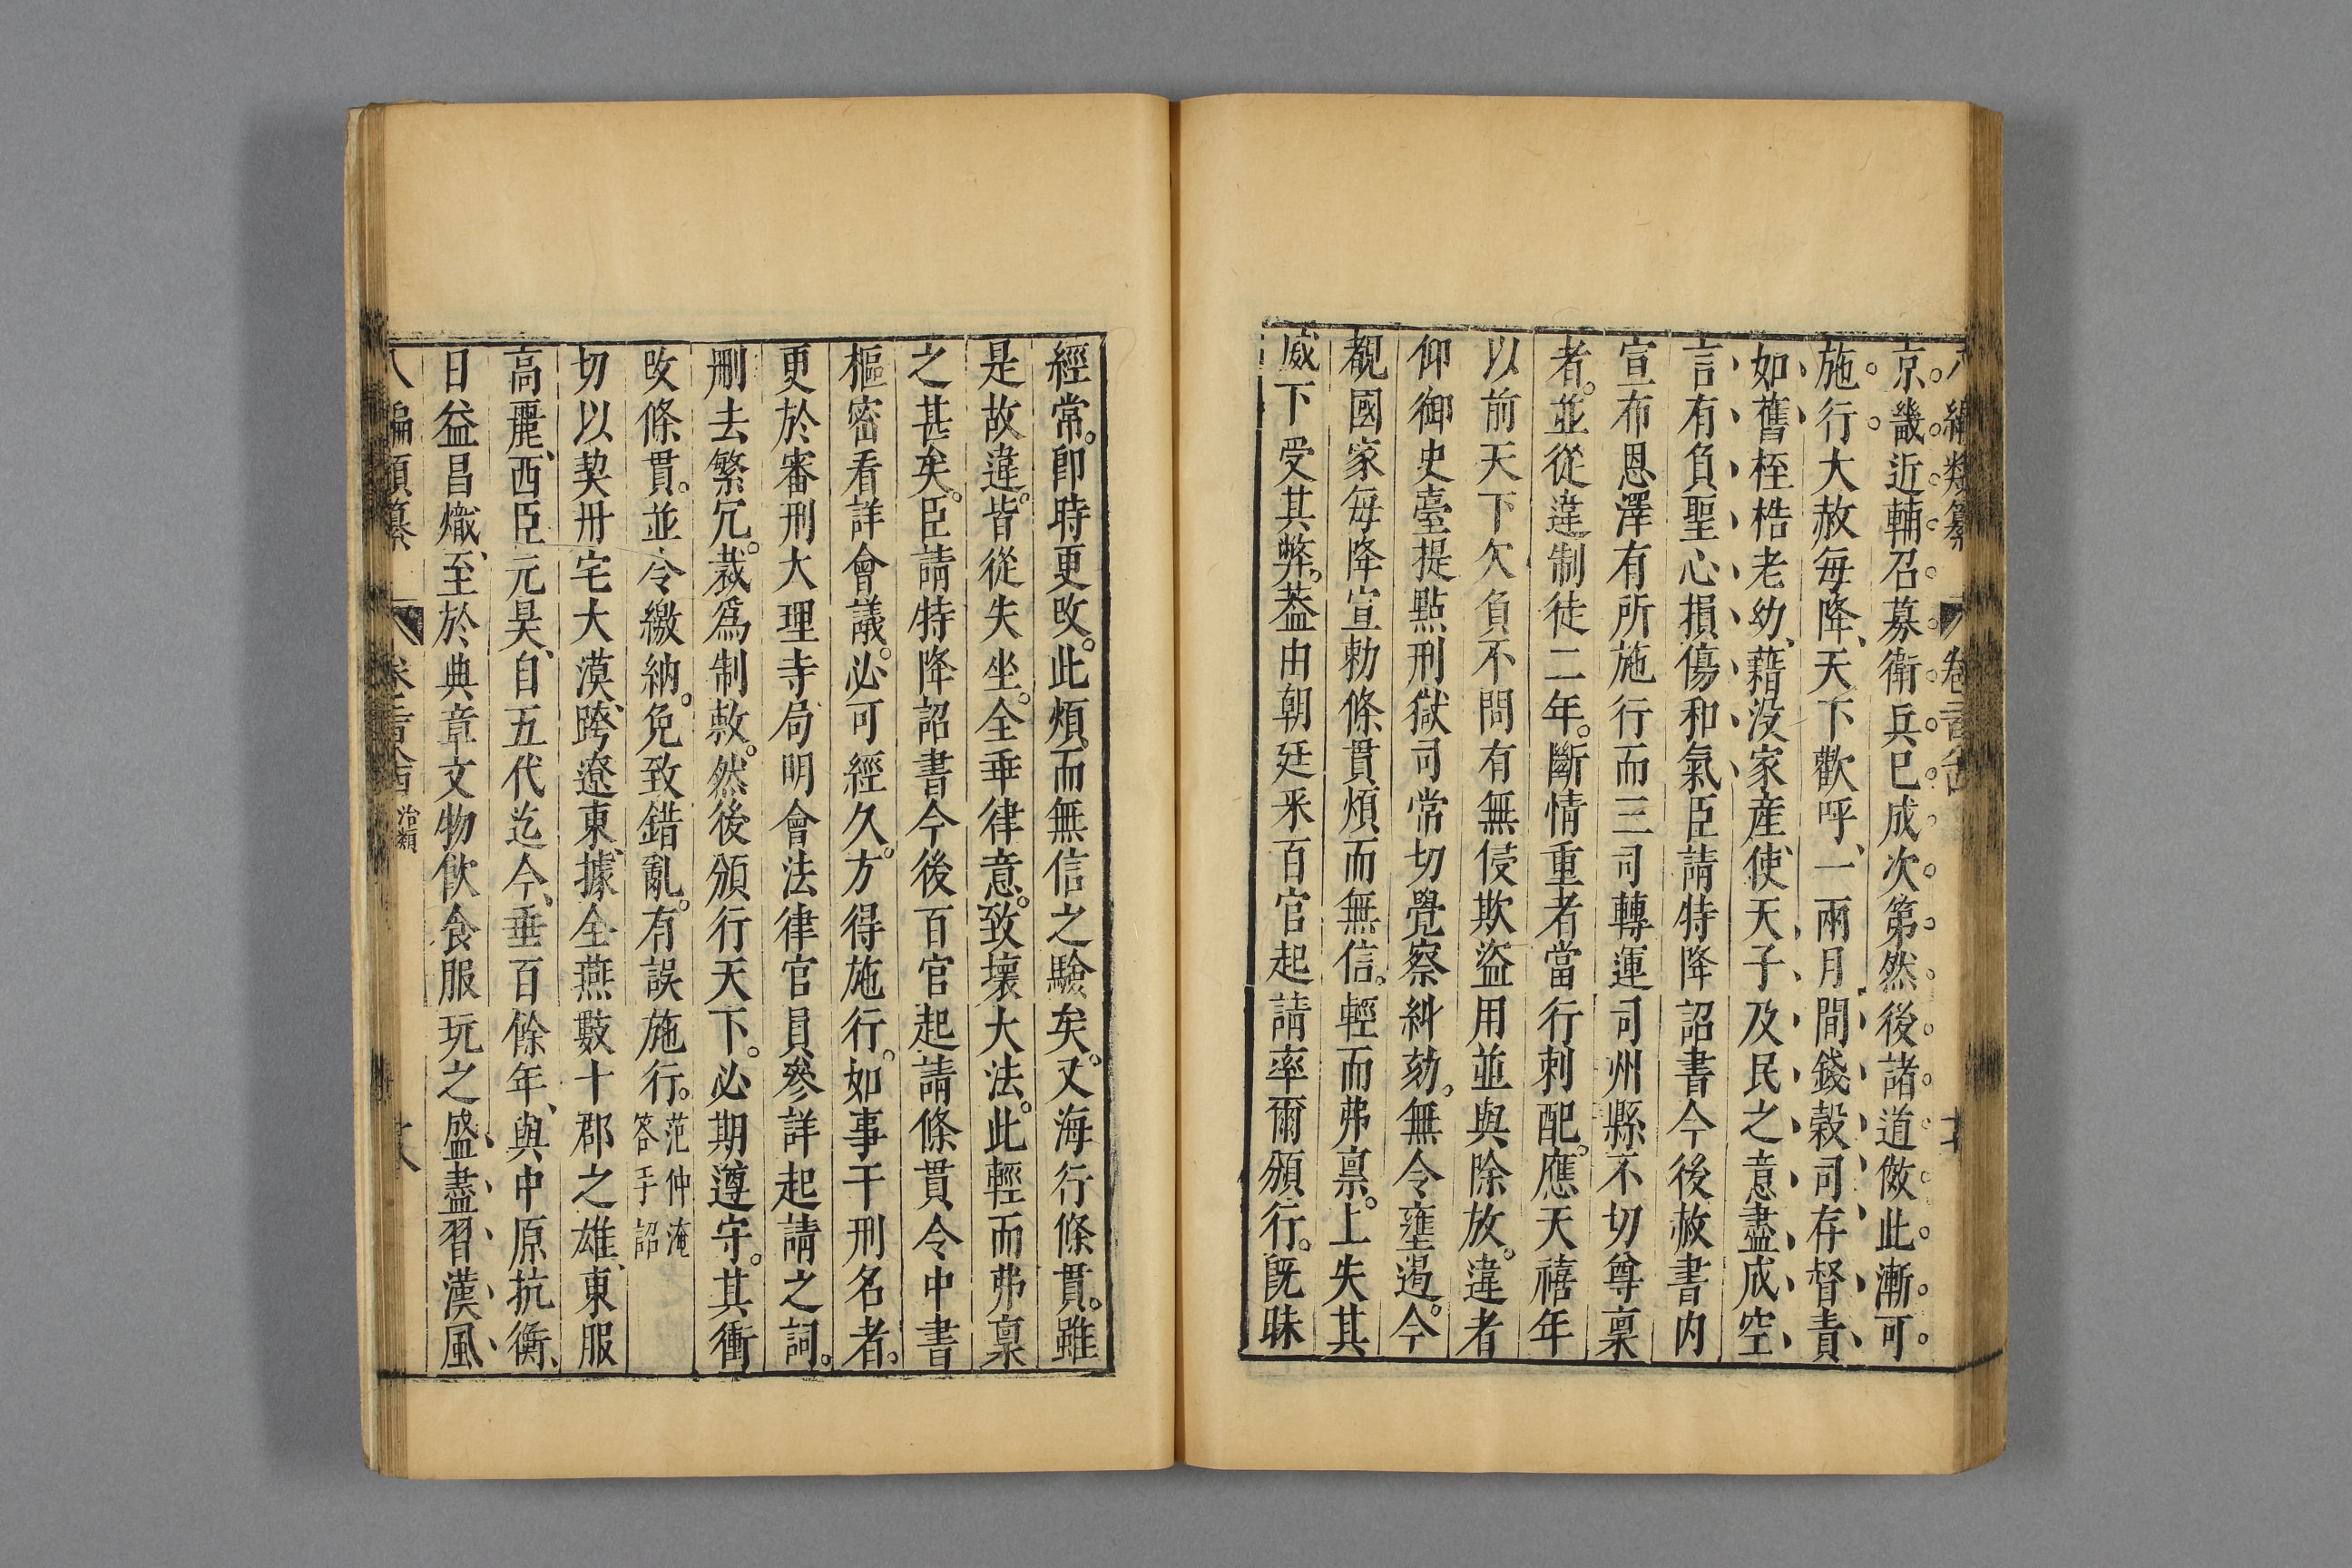 京畿近輔召募衛兵已成次第然後諸道倣此漸可
施行大赦每降、天下歡呼、一兩月間錢穀司存督責
如舊桎梏老幼、藉没家産、使天子及民之意盡成空
言有負聖心損傷和氣臣請特降詔書今後赦書内
宣布恩澤有所施行而三司轉運司州縣不切尊稟
者。並從違制徒二年。斷情重者當行刺配。應天禧年
以前天下欠負不問有無侵欺盜用並與除放。違者
仰御史臺提點刑獄司常切覺察糾劾。無令壅遏。今
覩國家每降宣勅條貫煩而無信。輕而弗禀。上失其
威下受其弊。葢由朝廷采百官起請率爾頒行。旣昧
經常。卽時更改。此煩而無信之驗矣。又海行條貫。雖
是故違。皆從失坐。全乖律意。致壞大法。此輕而弗稟
之甚矣。臣請特降詔書今後百官起請條貫令中書
樞密看詳會議。必可經久。方得施行。如事干刑名者。
更於審刑大理寺局明會法律官員參詳起請之詞。
刪去繁冗。裁爲制敕。然後頒行天下。必期遵守。其衝
改條貫。並令繳納。免致錯亂。有誤施行。范仲淹答手詔
切以契丹宅大漠、跨遼東、據全燕數十郡之雄、東服
高麗、西臣元昊、自五代迄今、垂百餘年、與中原抗衡、
日益昌熾、至於典章文物飮食服玩之盛盡習漢風
八編類纂
治類